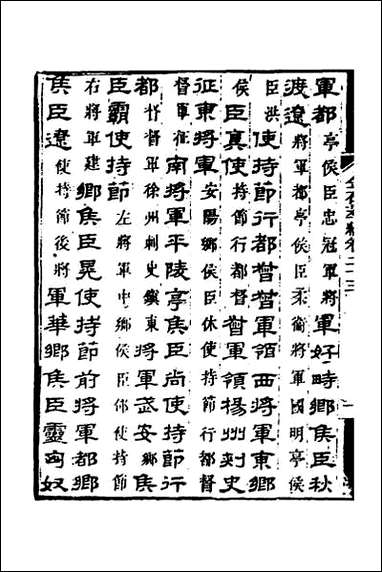 金石萃編卷二十三
軍都亭侯臣忠冠軍將軍好畤鄉侯臣秋
渡遼將軍都亭侯臣柔衛將軍國明亭侯
臣洪使持節行都督督軍領西將軍東鄉
侯臣真使持節行都督督軍領揚州刺史
征東將軍安陽鄉侯臣休使持節行都督
督軍征南將軍平陵亭侯臣尚使持節行
都督督軍徐州刺史鎮東將軍武安鄉侯
臣霸使持節左將軍中鄉侯臣郃使持節
右將軍建鄉侯臣晃使持節前將軍都鄉
侯臣遼使持節後將軍華鄉侯臣靈匈奴